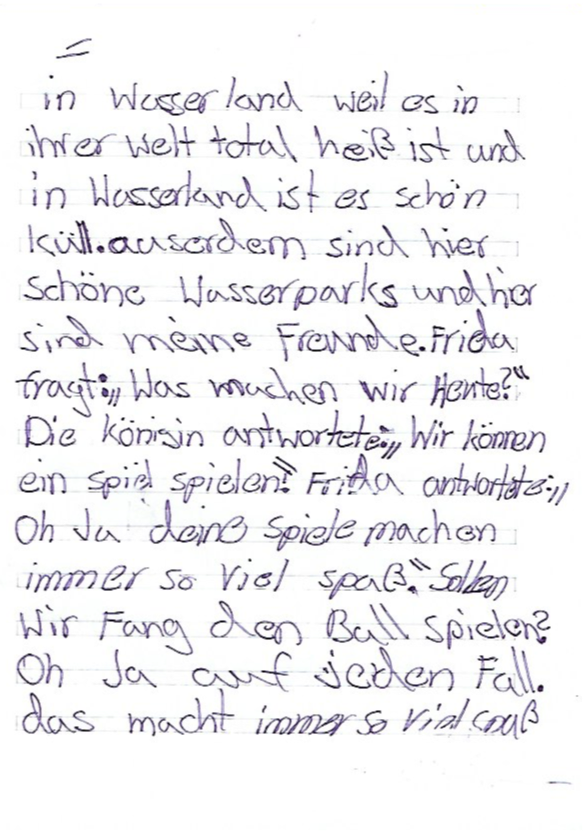 in Wasserland weil es in
ihrer Welt total heiß ist und
in Wasserland ist es schön
küll. auserdem sind hier
schöne Wasserparks und hier
sind meine Freunde. Frida
fragt: „Was machen wir Heute?“
Die könisin antwortete: „Wir können
ein spiel spielen!“ Frida antwortete: „
Oh Ja deine Spiele machen
immer so viel spaß.“ Sollen
Wir Fang den Ball spielen?
Oh Ja auf jeden Fall.
das macht immer so viel spaß